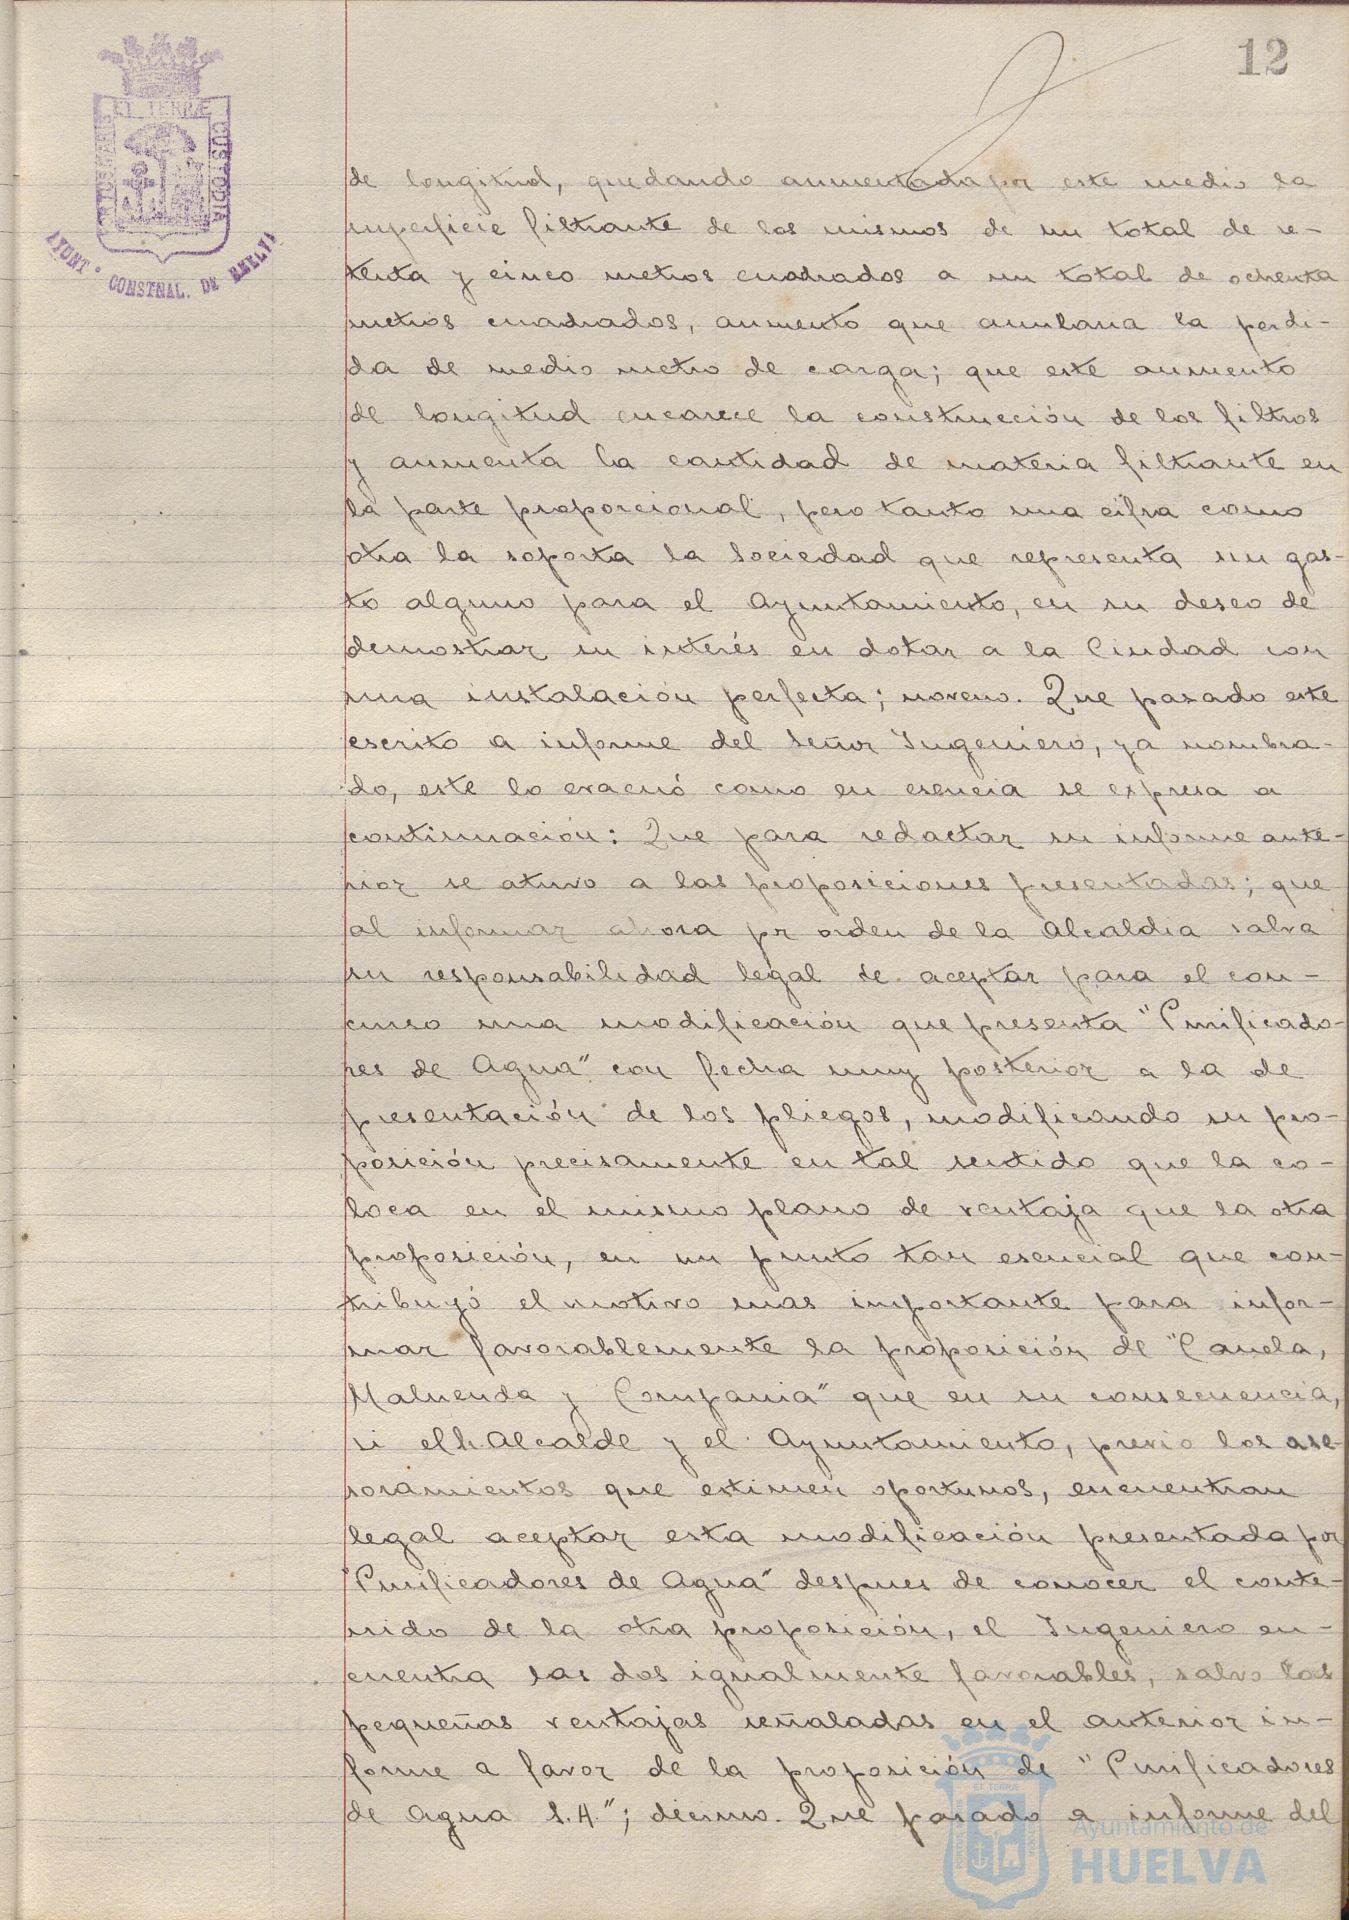 12
ET TERRÆ
CUSTODIA
AYUNT. CONSTNAL. DE HUELVA
de longitud, quedando aumentada por este medio la
superficie filtrante de los mismos de un total de se-
tenta y cinco metros cuadrados a un total de ochenta
metros cuadrados, aumento que anulana la perdi-
da de medio metro de carga; que este aumento
de longitud encarece la construcción de los filtros
y aumenta la cantidad de materia filtrante en
la parte proporcional, pero tanto una cifra como
otra la soporta la Sociedad que representa sin gas-
to alguno para el Ayuntamiento, en su deseo de
demostrar su interés en dotar a la Ciudad con
una instalación perfecta; noveno. Que pasado este
escrito a informe del Señor Ingeniero, ya nombra-
do, este lo evacuó como en esencia se expresa a
continuación: Que para redactar su informe ante-
rior se atuvo a las proposiciones presentadas; que
al informar ahora por orden de la Alcaldia salva
su responsabilidad legal de aceptar para el con-
curso una modificación que presenta "Purificado-
res de Agua" con fecha muy posterior a la de
presentación de los pliegos, modificando su pro-
posición precisamente en tal sentido que la co-
loca en el mismo plano de ventaja que la otra
proposición, en un punto tan esencial que con-
tribuyó el motivo mas importante para infor-
mar favorablemente la proposición de "Canela,
Maluenda y Compania" que en su consecuencia,
si el Sr. Alcalde y el Ayuntamiento, previo los ase-
soramientos que estimen oportunos, encuentran
legal aceptar esta modificación presentada por
"Purificadores de Agua" despues de conocer el conte-
nido de la otra proposición, el Ingeniero en-
cuentra las dos igualmente favorables, salvo las
pequeñas ventajas señaladas en el anterior in-
forme a favor de la proposición de "Purificadores
de Agua S.A."; décimo. Que pasado a informe del
Ayuntamiento de
HUELVA